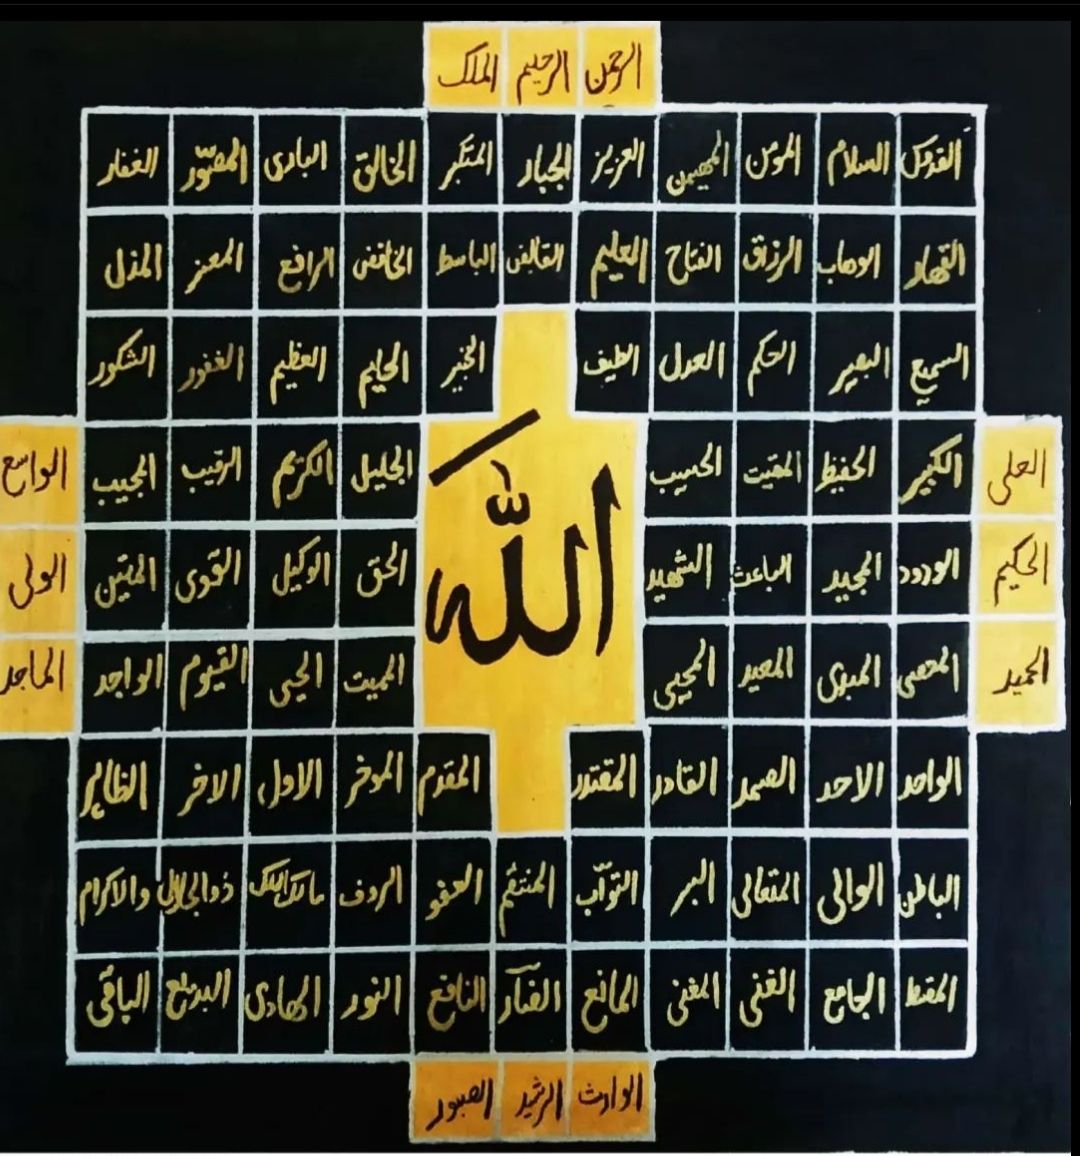 الرحمن الرحيم الملك
القدوس السلام المومن المهيمن العزيز الجبار المتكبر الخالق البادى المصوّر الغفار
القهار الوهاب الرزاق الفتاح العليم القابض الباسط الخافض الرافع المعز المذل
السميع البصير الحكم العدل الطيف الخبير الحليم العظيم الغفور الشكور
العلى الكبير الحفيظ المقيت الحسيب الجليل الكريم الرقيب المجيب الواسع
الله
الحكيم الودود المجيد الباعث الشهيد الحق الوكيل القوى المتين الولى
الحميد المحصى المبدى المعيد المحيى المميت الحيى القيوم الواجد الماجد
الواحد الاحد الصمد القادر المقتدر المقدم الموخر الاول الاخر الظاهر
الباطن الوالى المتعالى البر التوّاب المنتقم العفو الروف مالك الملك ذوالجلال والاكرام
المقسط الجامع الغنى المغنى المانع الضآر النافع النور الهادى البديع الباقى
الوارث الرشيد الصبور